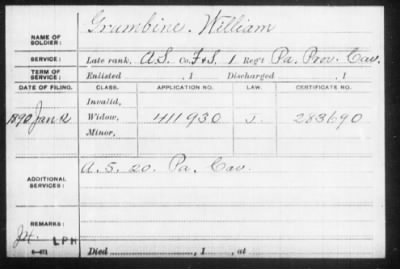 NAME OF SOLDIER: Grumbine, William
SERVICE: Late rank, A.S. Co. F&S, 1 Reg't Pa. Prov. Cav.
TERM OF SERVICE: Enlisted , 1 Discharged , 1
DATE OF FILING. CLASS. APPLICATION NO. LAW. CERTIFICATE NO.
Invalid,
1890 Jan 12 Widow, 411930 J. 283690
Minor,
ADDITIONAL SERVICES: A.S. 20. Pa. Cav.
REMARKS:
LPH
Died , 1 , at